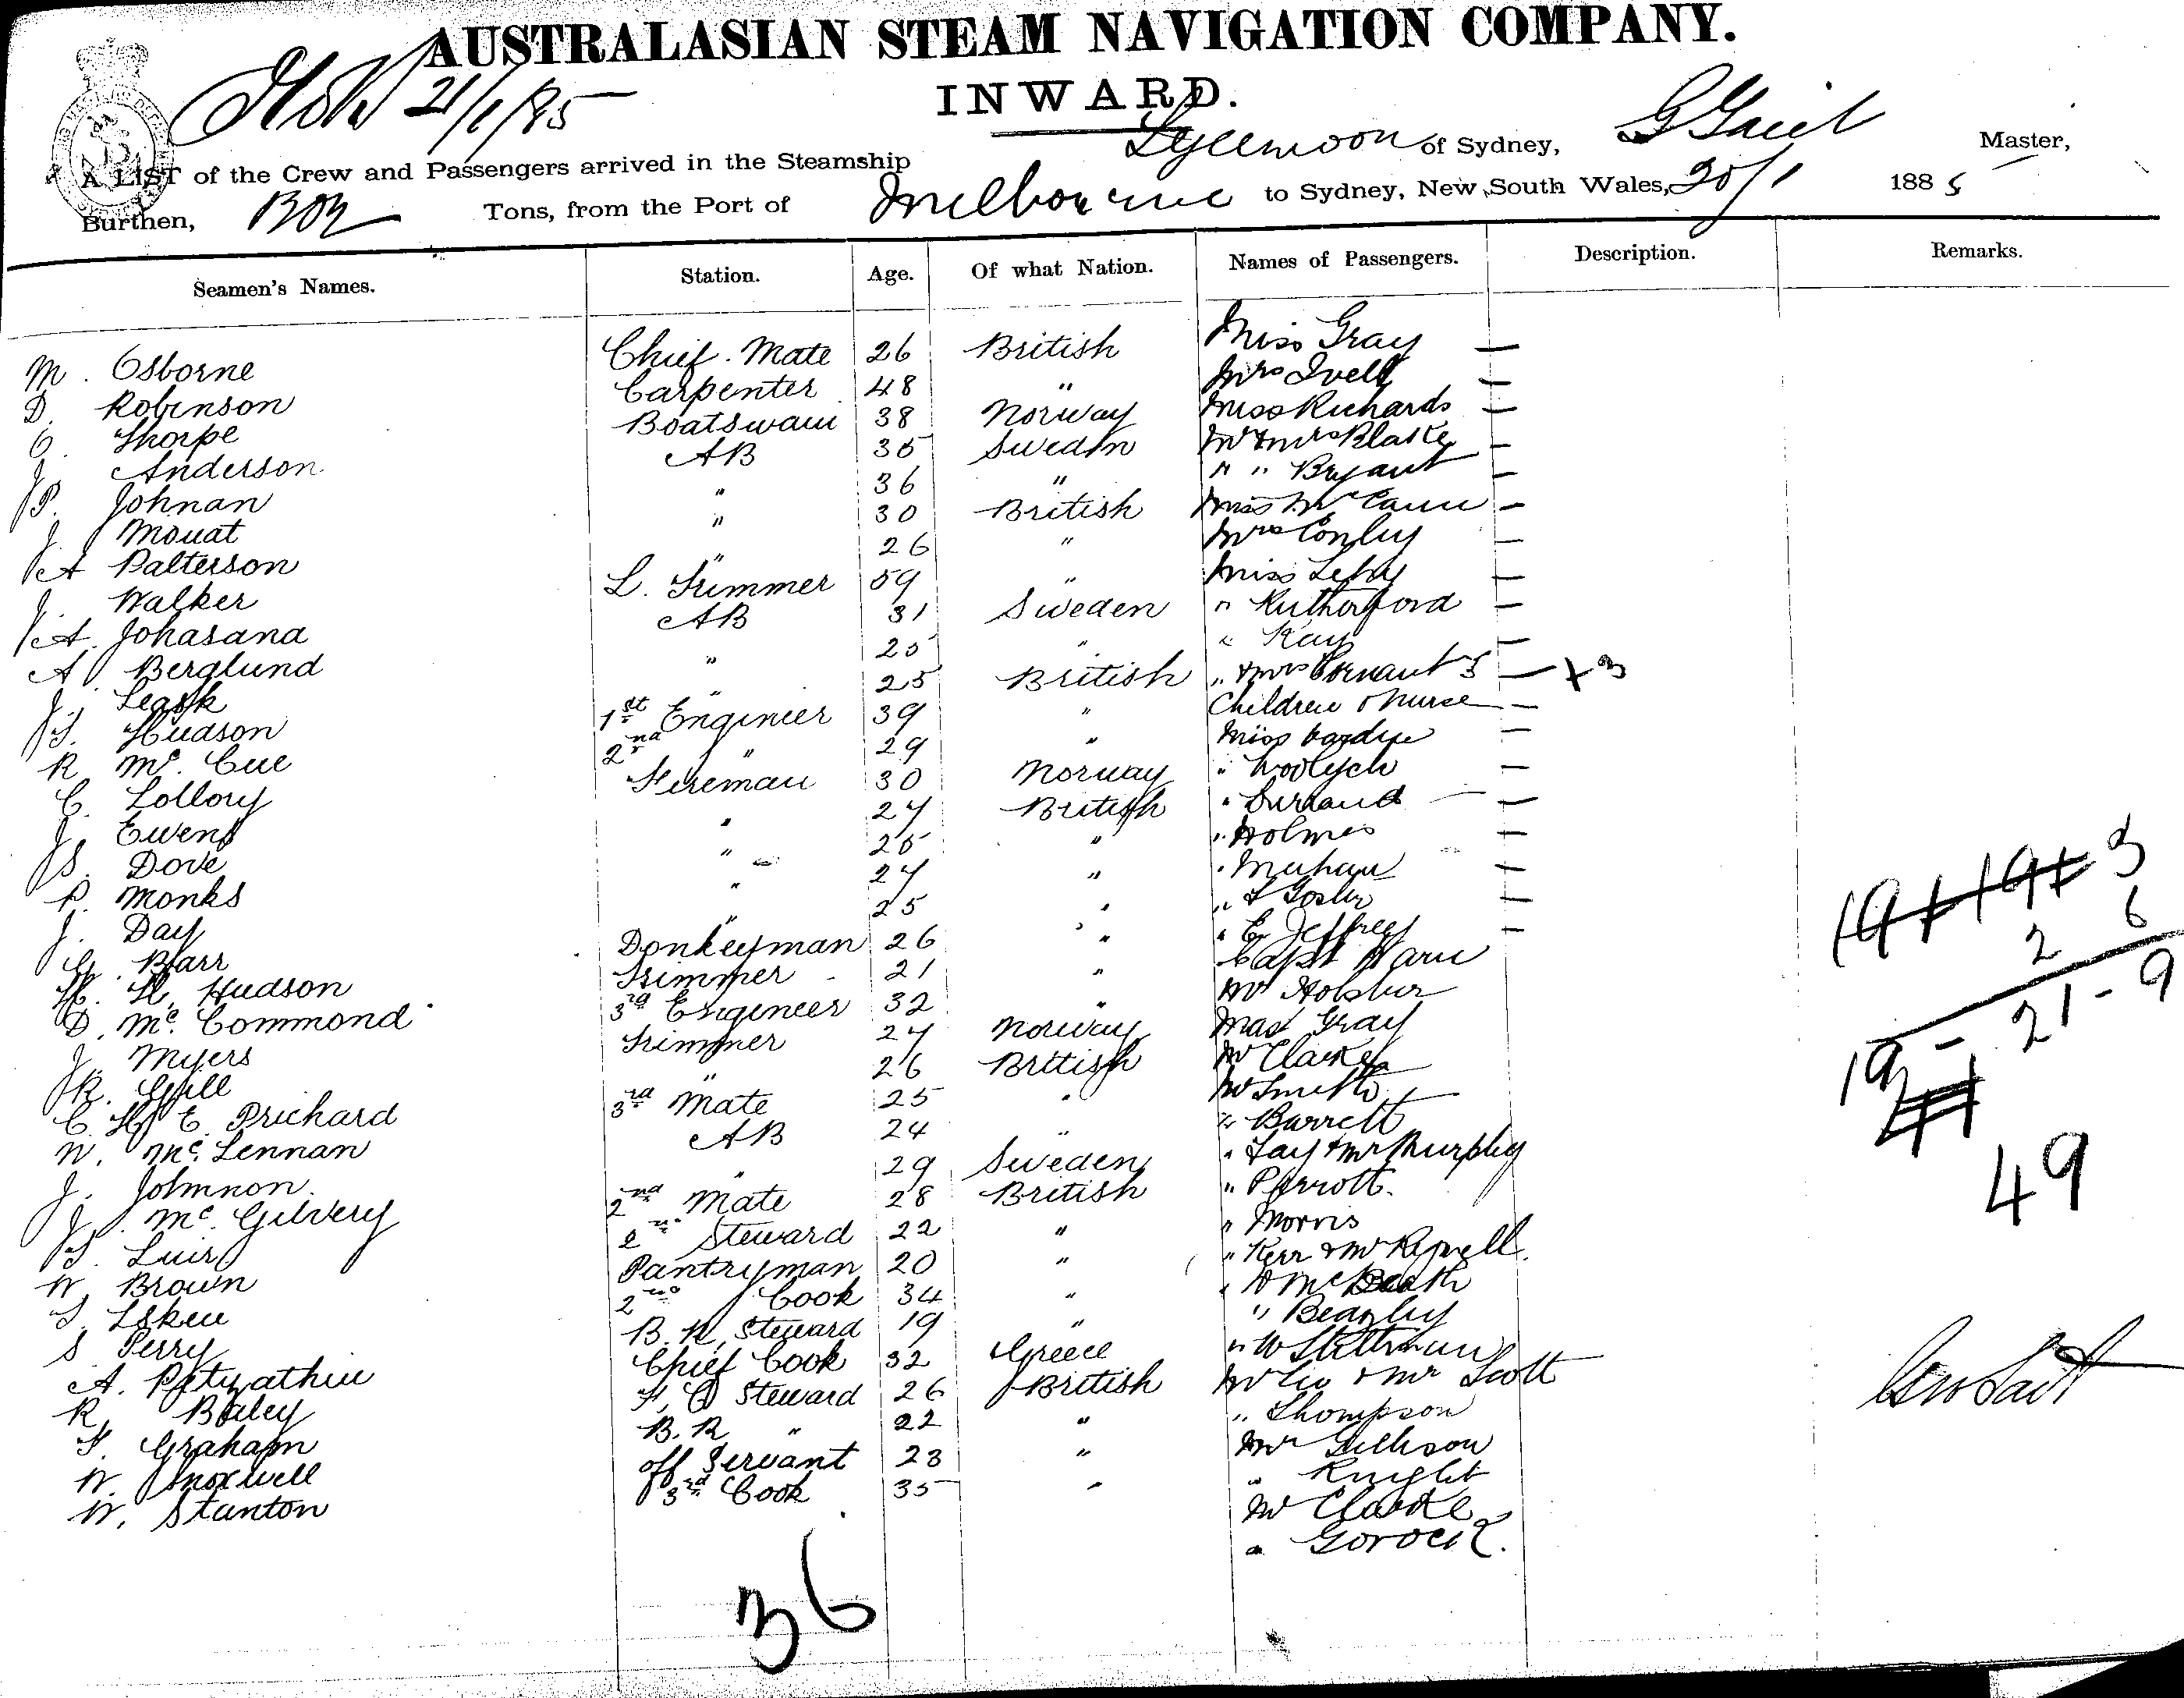 AUSTRALASIAN STEAM NAVIGATION COMPANY.
21/1/85
INWARD.
A LIST of the Crew and Passengers arrived in the Steamship Lyeemoon of Sydney, Master,
Burthen, Tons, from the Port of Melbourne to Sydney, New South Wales, 20/1 1885
Seamen's Names. Station. Age. Of what Nation. Names of Passengers. Description. Remarks.
M. Osborne Chief. Mate 26 British Miss Gray —
D. Robinson Carpenter 48 " Mrs —
O. Thorpe Boatswain 38 Norway Miss Richards —
J. Anderson AB 35 Sweden Mr & Mrs Blake —
P. Johnan " 36 " " " Bryant —
J. Mouat " 30 British Miss McCann —
A Patterson " 26 " Mrs Conley —
J. Walker L. Trimmer 59 " Miss —
A. Johasana AB 31 Sweden " Rutherford —
A Berglund " 25 " " Kay —
J. Leask " 25 British " & Mrs 3 — + 3
J. Hudson 1st Engineer 39 " Children & nurse —
R Mc. Cue 2nd " 29 " Miss —
C. Lollory Fireman 30 Norway " —
J. Ewens " 27 British " —
S. Dove " 25 " " Holmes —
P. Monks " 27 " " —
J. Day " 25 " " —
G. Barr Donkeyman 26 " " E. Jeffrey —
H. H. Hudson Trimmer 21 " Capt
D. Mc. Commond 3rd Engineer 32 " Mr
J. Myers Trimmer 27 Norway Mast Gray
R. Gill " 26 British Mr Clarke
C. H. E. Prichard 3rd Mate 25 " Mr Smith
N. Mc. Lennan AB 24 " " Barrett
J. Johnnon. " 29 Sweden " Fay & Mr Murphy
J. Mc. Gilvery 2nd Mate 28 British " Perrott.
S. Luis 2nd Steward 22 " " Morris
W. Brown Pantryman 20 " " Kerr & Mr
T. 2nd Cook 34 " " McBeath
S Perry B. R. Steward 19 " " Beazley
A. Chief Cook 32 Greece " W
R, Baley F. C Steward 26 British Mr & Mr Scott
F. Graham B. R " 22 " " Thompson
W. Smoxwell off Servant 23 " Mr
W. Stanton 3rd Cook 35 " " Knight
Mr Clarke
" Gorock.
36
19 + 19 + 3
2 6
21 - 9
19 -
49